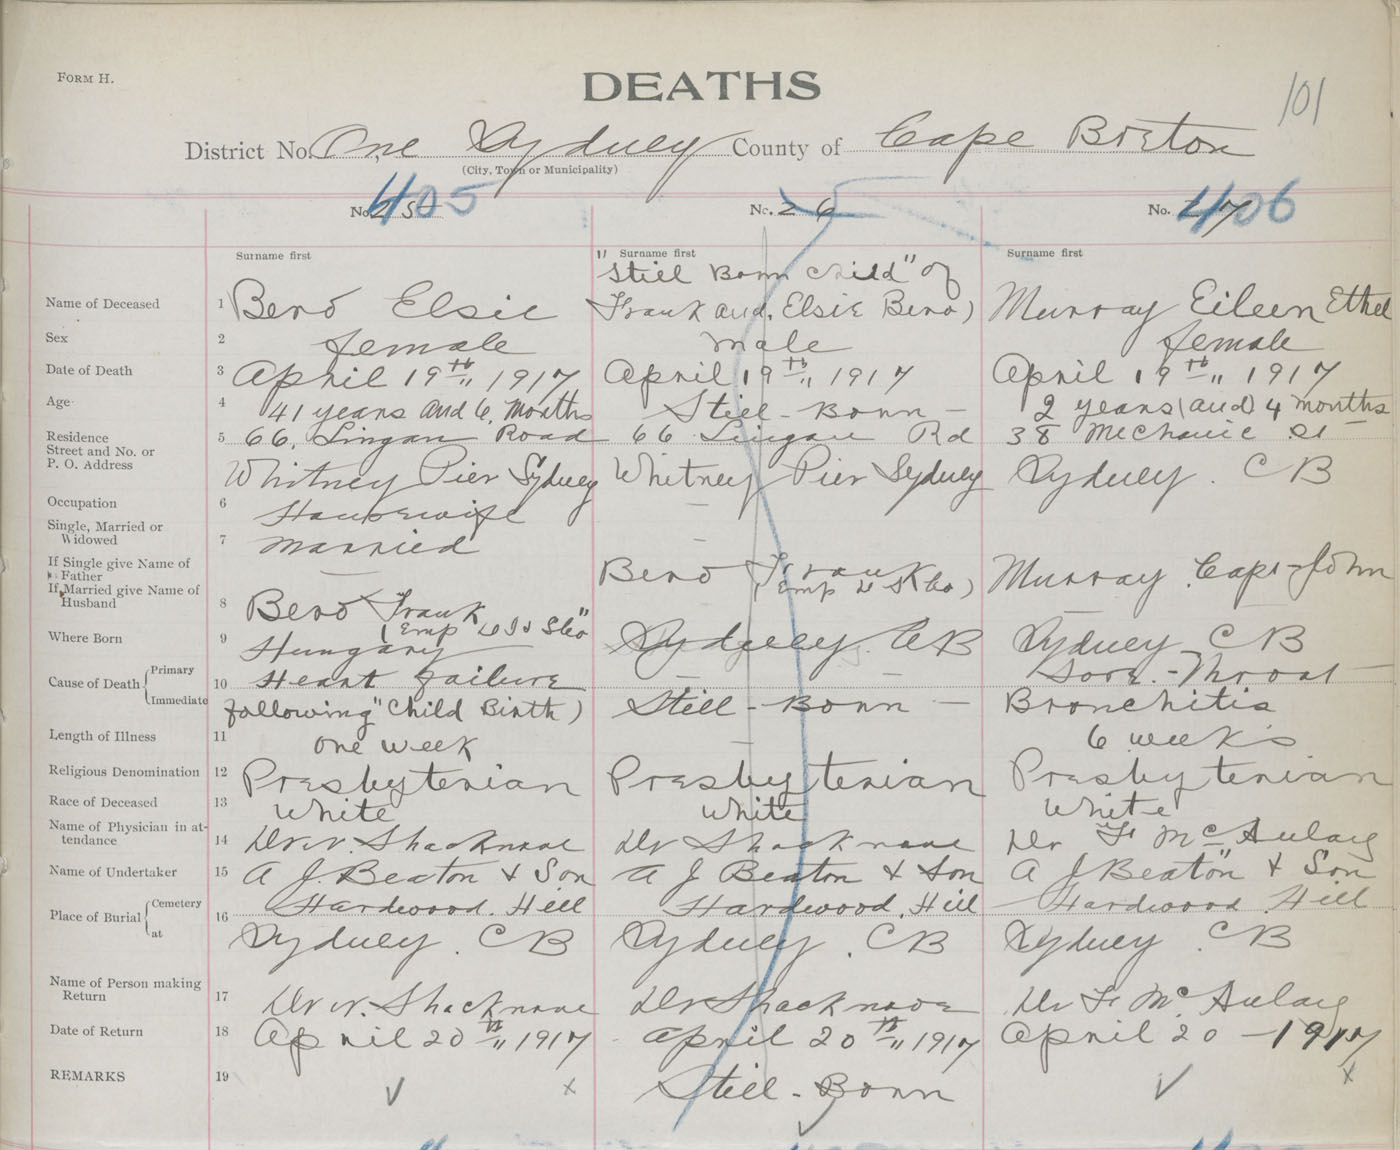 FORM H.
DEATHS
101
District No. One Sydney County of Cape Breton
(City, Town or Municipality)
No. 25 405
No. 26
No. 27 406
Surname first
Surname first
Surname first
Name of Deceased 1 Bero Elsie
"Still Born Child" of
Frank and Elsie Bero)
Murray Eileen Ethel
Sex 2 female
male
female
Date of Death 3 April 19th 1917
April 19th 1917
April 19th 1917
Age 4 41 years and 6 Months
Still-Born-
2 years (and) 4 months
Residence
Street and No. or
P. O. Address
5 66, Lingan Road
Whitney Pier Sydney
66 Lingan Rd
Whitney Pier Sydney
38 Mechanic St
Sydney. CB
Occupation 6 Housewife
—
Single, Married or
Widowed
7 married
-
If Single give Name of
Father
—
Bero Frank
(Emp
Murray Capt John
If Married give Name of
Husband
8 Bero Frank
(Emp
—
Where Born 9 Hungary
Sydney CB
Sydney CB
Cause of Death { Primary
Immediate
10 Heart failure
following "Child Birth)
— —
Still-Born —
Sore-Throat
Bronchitis
Length of Illness 11 one week
—
6 weeks
Religious Denomination 12 Presbyterian
Presbyterian
Presbyterian
Race of Deceased 13 White
White
White
Name of Physician in at-
tendance
14 Dr N. Shacknove
Dr Shacknove
Dr F McAulay
Name of Undertaker 15 A J. Beaton & Son
A J Beaton & Son
A J Beaton & Son
Place of Burial { Cemetery
at
16 Hardwood. Hill
Sydney. CB
Hardwood. Hill
Sydney. CB
Hardwood Hill
Sydney. CB
Name of Person making
Return
17 Dr N. Shacknove
Dr Shacknove
Dr F. McAulay
Date of Return 18 April 20th 1917
April 20th 1917
April 20 - 1917
REMARKS 19
Still-Born